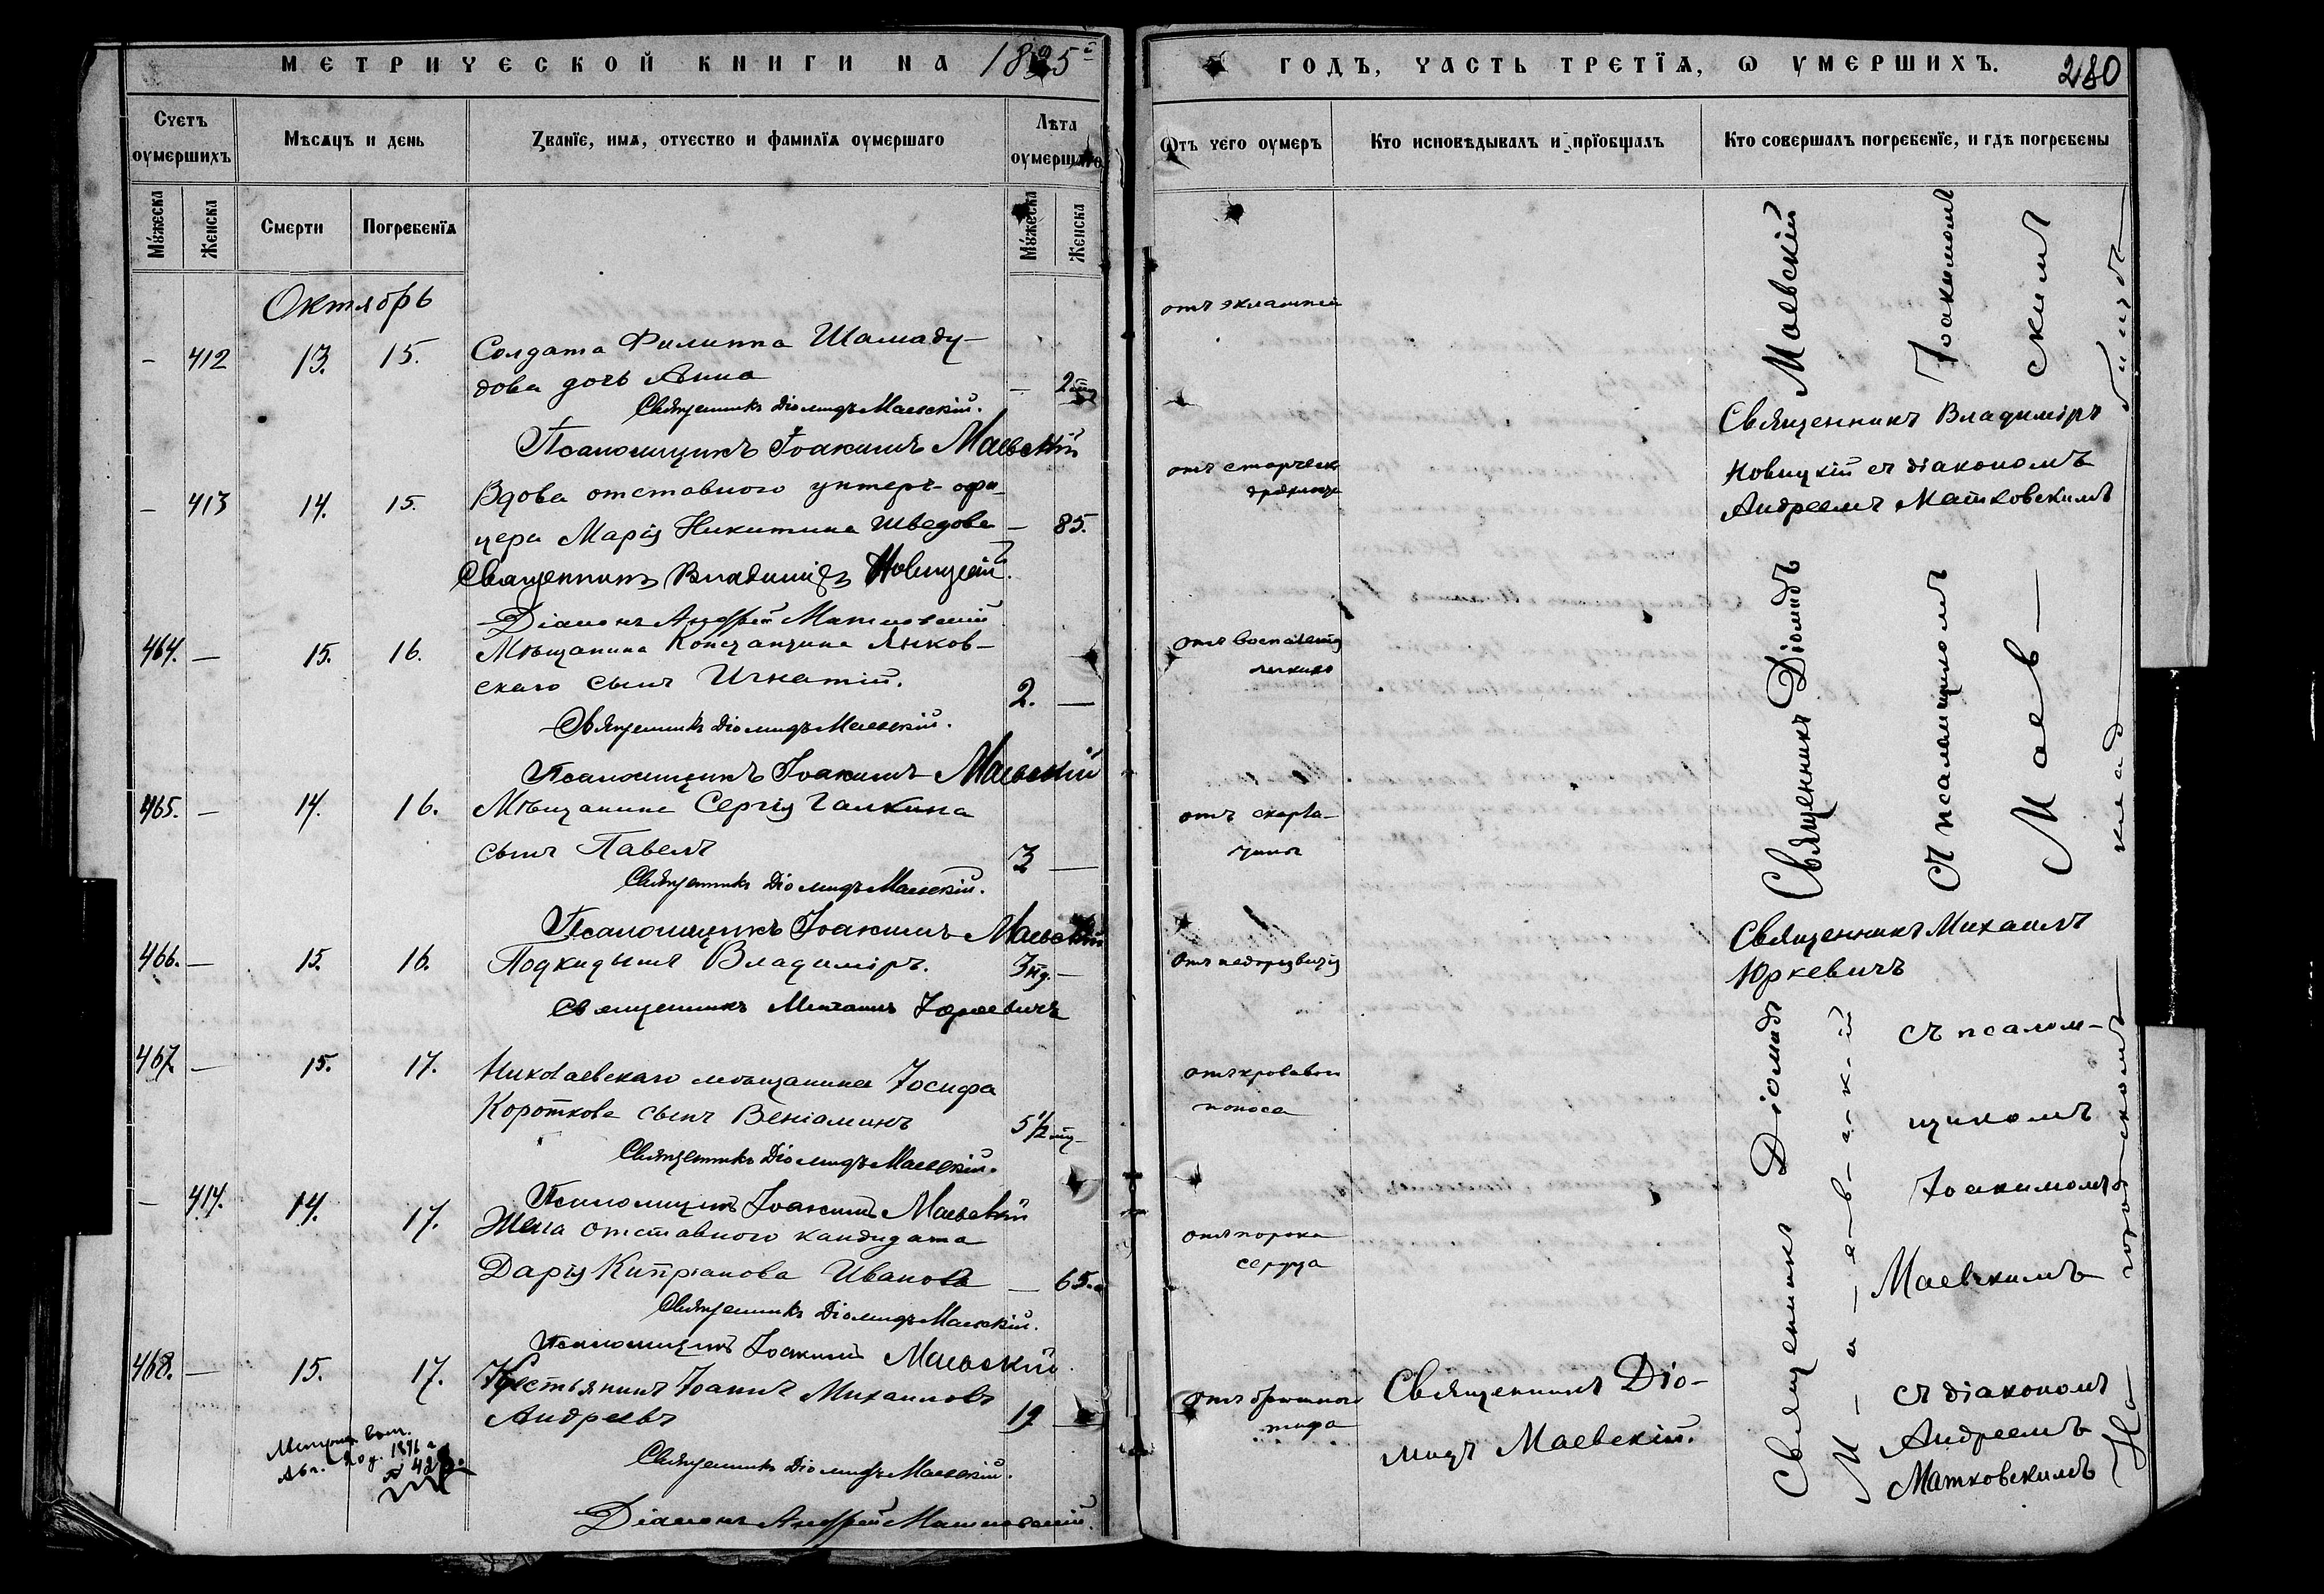 МЕТРИЧЕСКОЙ КНИГИ НА 1895 й
Счетъ оумершихъ
Мѣсѧцъ и день
Званїе, имѧ, отчество и фамилїѧ оумершаго
Лѣта оумершаго
Мꙋжеска
Женска
Смерти
Погребенїѧ
Мꙋжеска
Женска
Октябрь
— 412 13. 15. Солдата Филиппа Шамаду-
дова дочь Анна — 2 мц
Священникъ Діомидъ Маевскій.
Псаломщикъ Іоакимъ Маевскій
— 413 14. 15. Вдова отставного унтеръ-офи-
цера Марія Никитина Шведова — 85.
Священникъ Владиміръ Новицкій.
Діаконъ Андрей Матковскій
464. — 15. 16. Мѣщанина Констанзина Янков-
скаго сынъ Игнатій. 2. —
Священникъ Діомидъ Маевскій.
Псаломщикъ Іоакимъ Маевскій
465. — 14. 16. Мѣщанина Сергія Галкина
сынъ Павелъ 3 —
Священникъ Діомидъ Маевскій.
Псаломщикъ Іоакимъ Маевскій
466. — 15. 16. Подкидышъ Владиміръ. 3 нд. —
Священникъ Михаилъ Юркевичъ
467 — 15. 17. Николаевскаго мѣщанина Іосифа
Короткова сынъ Веніаминъ 5 1/2 мц —
Священникъ Діомидъ Маевскій.
Псаломщикъ Іоакимъ Маевскій
— 414. 14. 17. Жена отставного кандидата
Дарія Кипріанова Иванова — 65.
Священникъ Діомидъ Маевскій.
Псаломщикъ Іоакимъ Маевскій.
468. — 15. 17. Крестьянинъ Іоаннъ Михаиловъ
Андреевъ 19 —
Священникъ Діомидъ Маевскій.
Діаконъ Андрей Матковскій.
1896 г.
ГОДЪ, ЧАСТЬ ТРЕТІѦ, Ѡ УМЕРШИХЪ. 280
Ѿтъ чего оумеръ
Кто исповѣдывалъ и прїобщалъ
Кто совершалъ погребенїе, и гдѣ погребены
отъ эклампсіи
отъ старческ.
дряхлости
отъ воспаленія
легкихъ
отъ скарла-
тины
отъ недоразвитія
отъ кроваваго
поноса
отъ порока
сердца
отъ брюшного
тифа
Священникъ Діо-
мидъ Маевскій.
Священникъ Діомидъ Маевскій
съ псаломщикомъ Іоакимомъ
Маев— скимъ
Священникъ Владиміръ
Новицкій съ діакономъ
Андреемъ Матковскимъ
Священникъ Михаилъ
Юркевичъ
Священникъ Діомидъ
М-а-е-в-с-к-ій
съ псалом-
щикомъ
Іоакимомъ
Маевскимъ
съ діакономъ
Андреемъ
Матковскимъ
На— городскомъ— кладбищѣ—